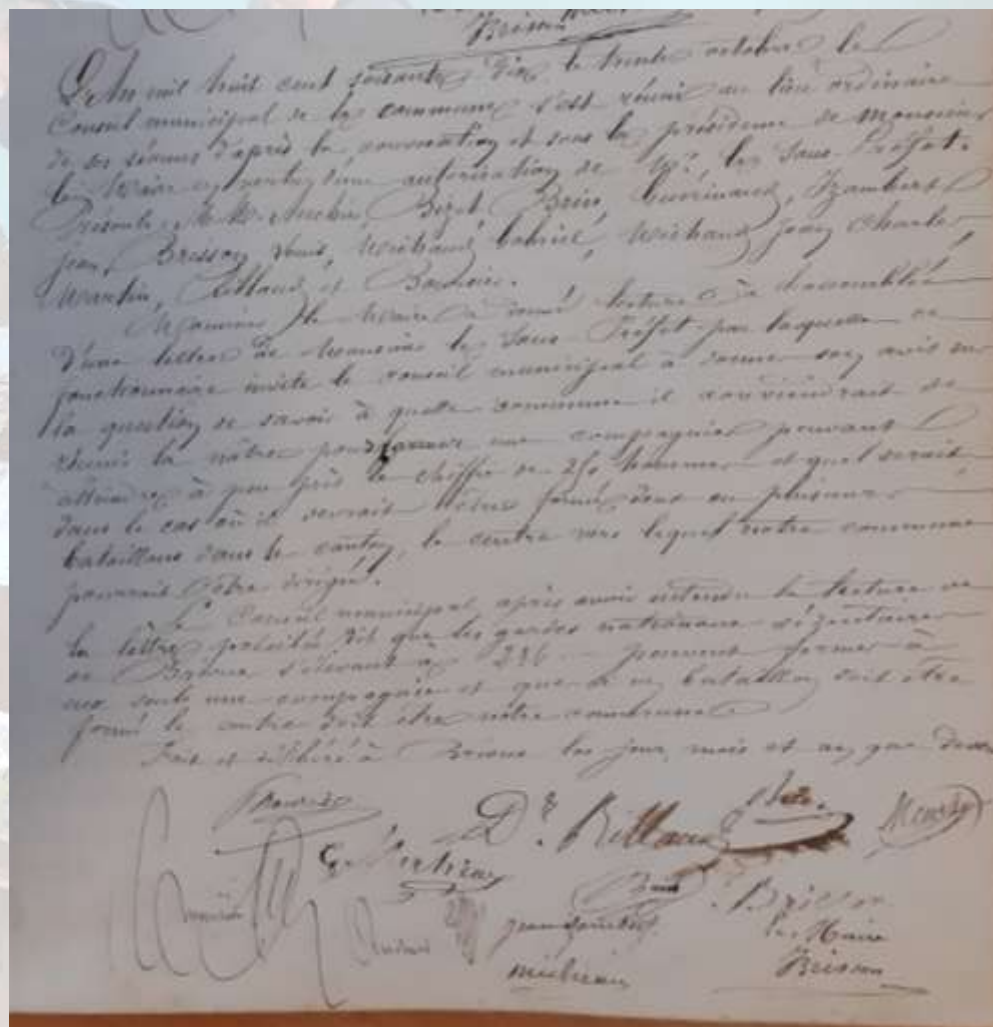 Brisson
L'An mil huit cent soixante dix le trente octobre le
Conseil municipal de la commune s'est réuni au lieu ordinaire
de ses séances d'après la convocation et sous la présidence de Monsieur
le Maire en vertu d'une autorisation de Mr. le Sous-Préfet.
Présents M.M. Bizet, Brin, Guérineau, Izambert
jean, Brisson Louis, Michaud Gabriel, Michaud jean Charles,
Martin, Rillaud et
Monsieur le Maire a donné lecture à l'assemblée
d'une lettre de Monsieur le Sous Préfet par laquelle ce
fonctionnaire invite le conseil municipal à donner son avis sur
la question de savoir à quelle commune il conviendrait de
réunir la nôtre pour former une compagnie pouvant
atteindre à peu près le chiffre de 250 hommes et quel serait,
dans le cas où il devrait être formé deux ou plusieurs
bataillons dans le canton, le centre vers lequel notre commune
pourrait être dirigée.
Le Conseil municipal, après avoir entendu la lecture de
la lettre précitée dit que les gardes nationaux sédentaires
de s'élevant à 236 peuvent former à
eux seuls une compagnie et que si un bataillon doit être
formé le centre doit être notre commune
Fait et délibéré à les jour, mois et an que dessus
Dr Rillaud
Brisson
jean izambert le Maire
michaud Brisson